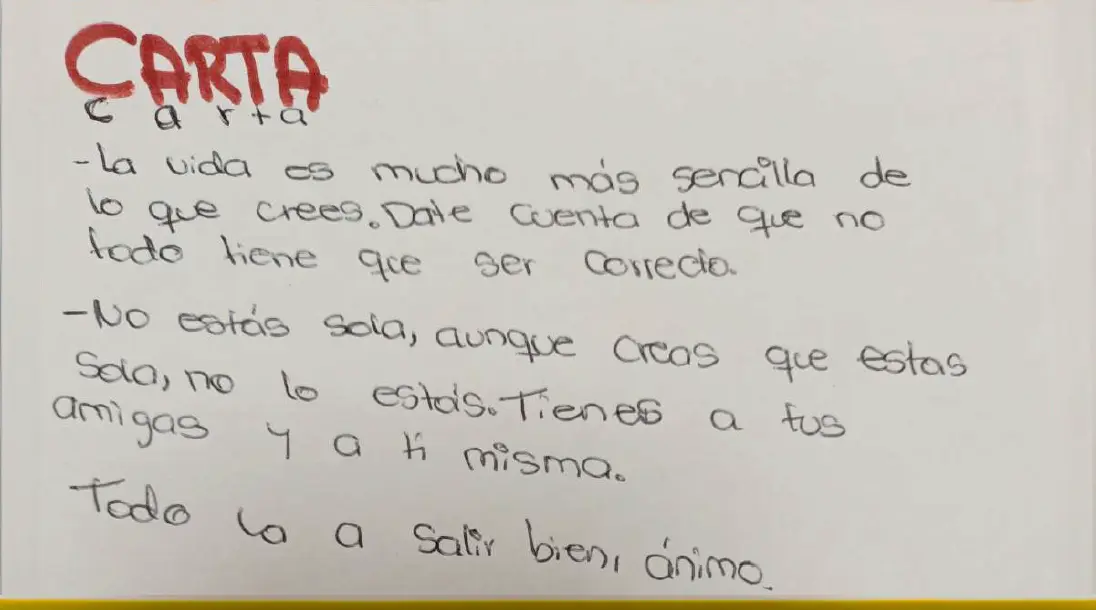 CARTA
carta
-La vida es mucho más sencilla de
lo que crees. Date cuenta de que no
todo tiene que ser correcto.
-No estás sola, aunque creas que estas
sola, no lo estás. Tienes a tus
amigas y a ti misma.
Todo va a salir bien, ánimo.